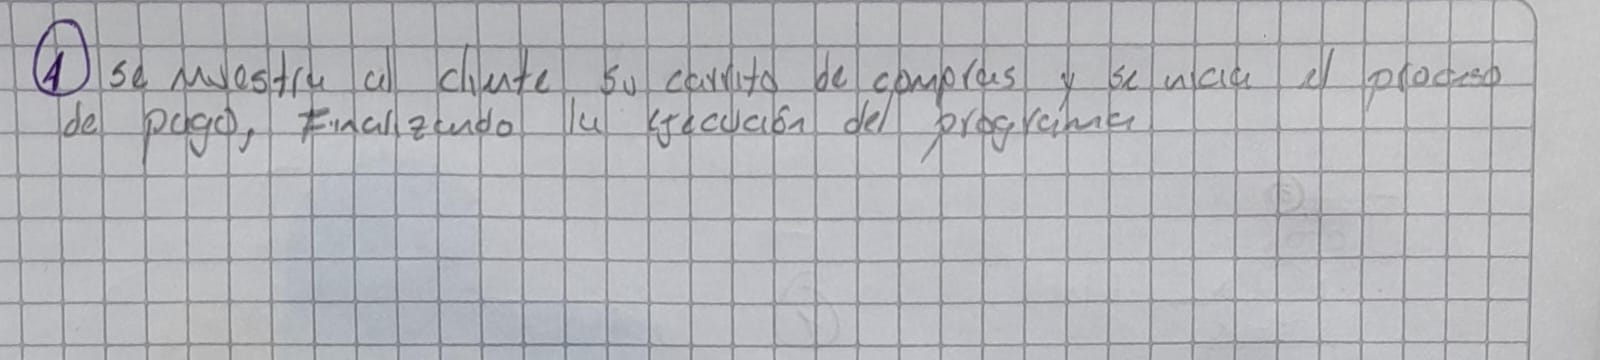 1 se muestra al cliente su carrito de compras y se inicia el proceso
de pago, Finalizando la ejecución del programa